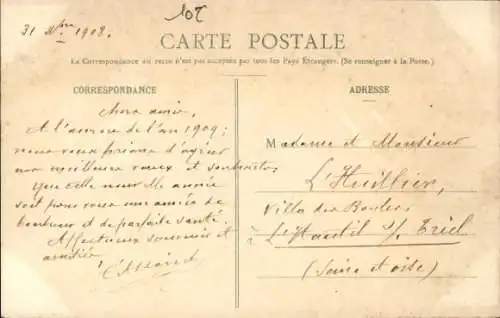 10t
31 Xbre 1908.
CARTE POSTALE
La Correspondance au recto n'est pas acceptée par tous les Pays Étrangers. (Se renseigner à la Poste.)
CORRESPONDANCE
Chers amis,
A l'aurore de l'an 1909;
nous vous prions d'agréer
nos meilleurs vœux et souhaits,
Que cette nouvelle année
soit pour vous une année de
bonheur et de parfaite santé.
Affectueux souvenir et
amitiés
ADRESSE
Madame et Monsieur
L'Huillier,
Villa des
à L'Hautil s/ Triel
(Seine et oise)